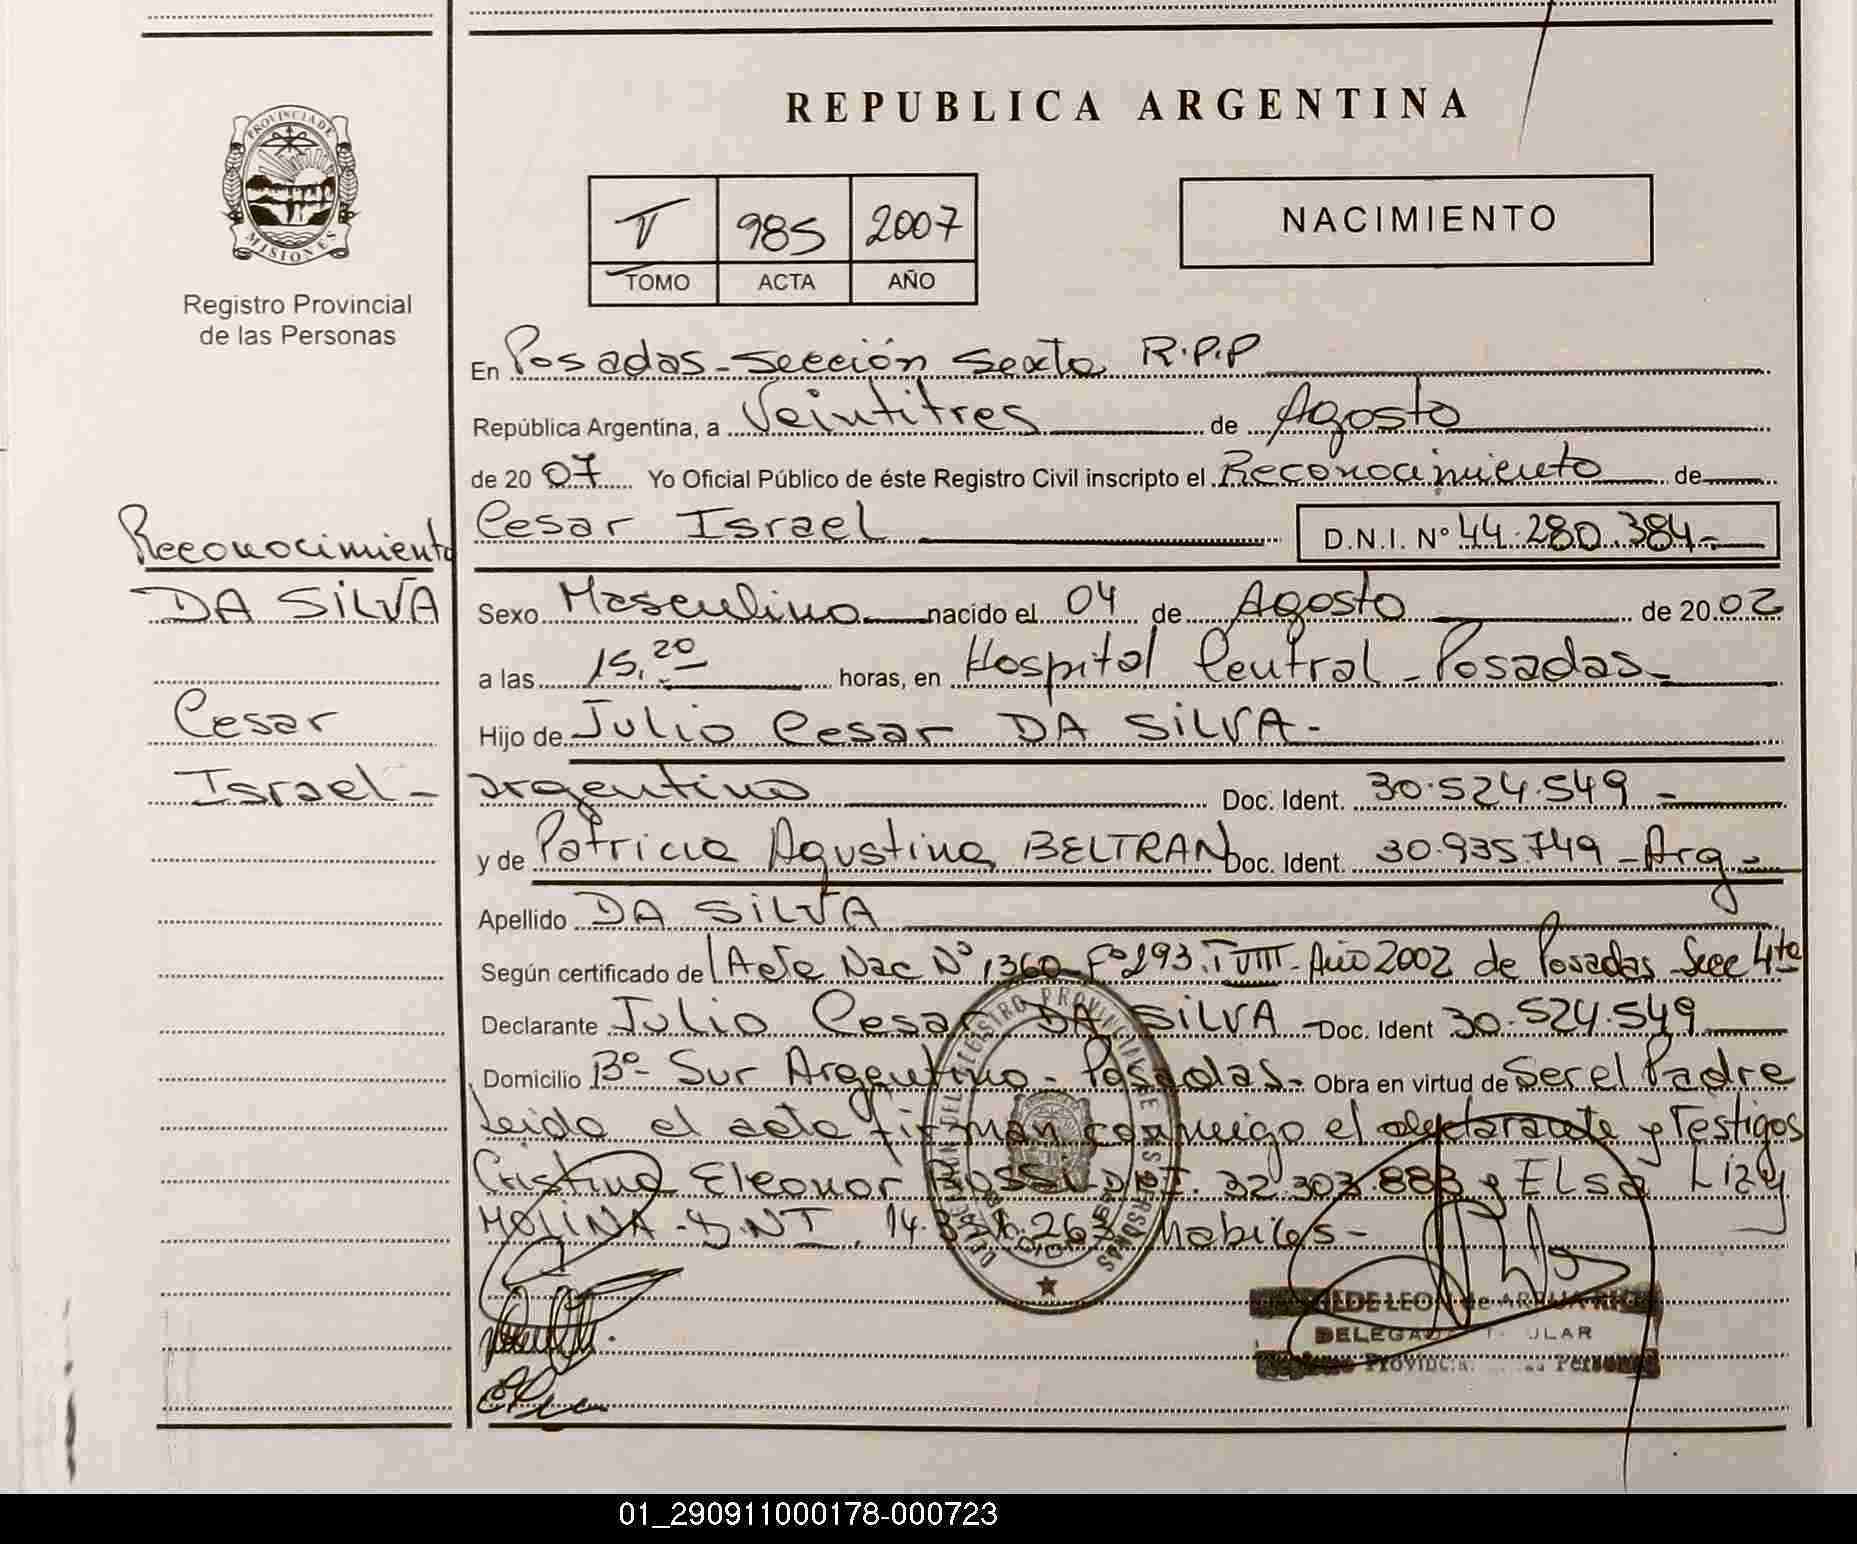 REPUBLICA ARGENTINA
PROVINCIA DE
MISIONES
Registro Provincial
de las Personas
V 985 2007
TOMO ACTA AÑO
NACIMIENTO
En Posadas - Sección Sexta R.P.P
República Argentina, a Veintitres de Agosto
de 20 07 Yo Oficial Público de éste Registro Civil inscripto el Reconocimiento de
Cesar Israel D.N.I. Nº 44.280.384.-
Reconocimiento
DA SILVA
Cesar
Israel -
Sexo Masculino nacido el 04 de Agosto de 20 02
a las 15,20 horas, en Hospital Central - Posadas -
Hijo de Julio Cesar DA SILVA -
argentino Doc. Ident. 30.524.549 -
y de Patricia Agustina BELTRAN Doc. Ident. 30.935.749 - Arg -
Apellido DA SILVA
Según certificado de Acta Nac Nº 1360 Fº 293 T VIII - Año 2002 de Posadas Secc 4ta
Declarante Julio Cesar DA SILVA - Doc. Ident 30.524.549
Domicilio Bº Sur Argentino - Posadas - Obra en virtud de Ser el Padre
Leida el acta firman conmigo el declarante y Testigos
Cristina Eleonor ROSSI DNI. 32.303.883 y Elsa Lizy
MOLINA - DNI. 14. habiles -
DE LEON de
DELEGADA TITULAR
Provincial Personas
01_290911000178-000723